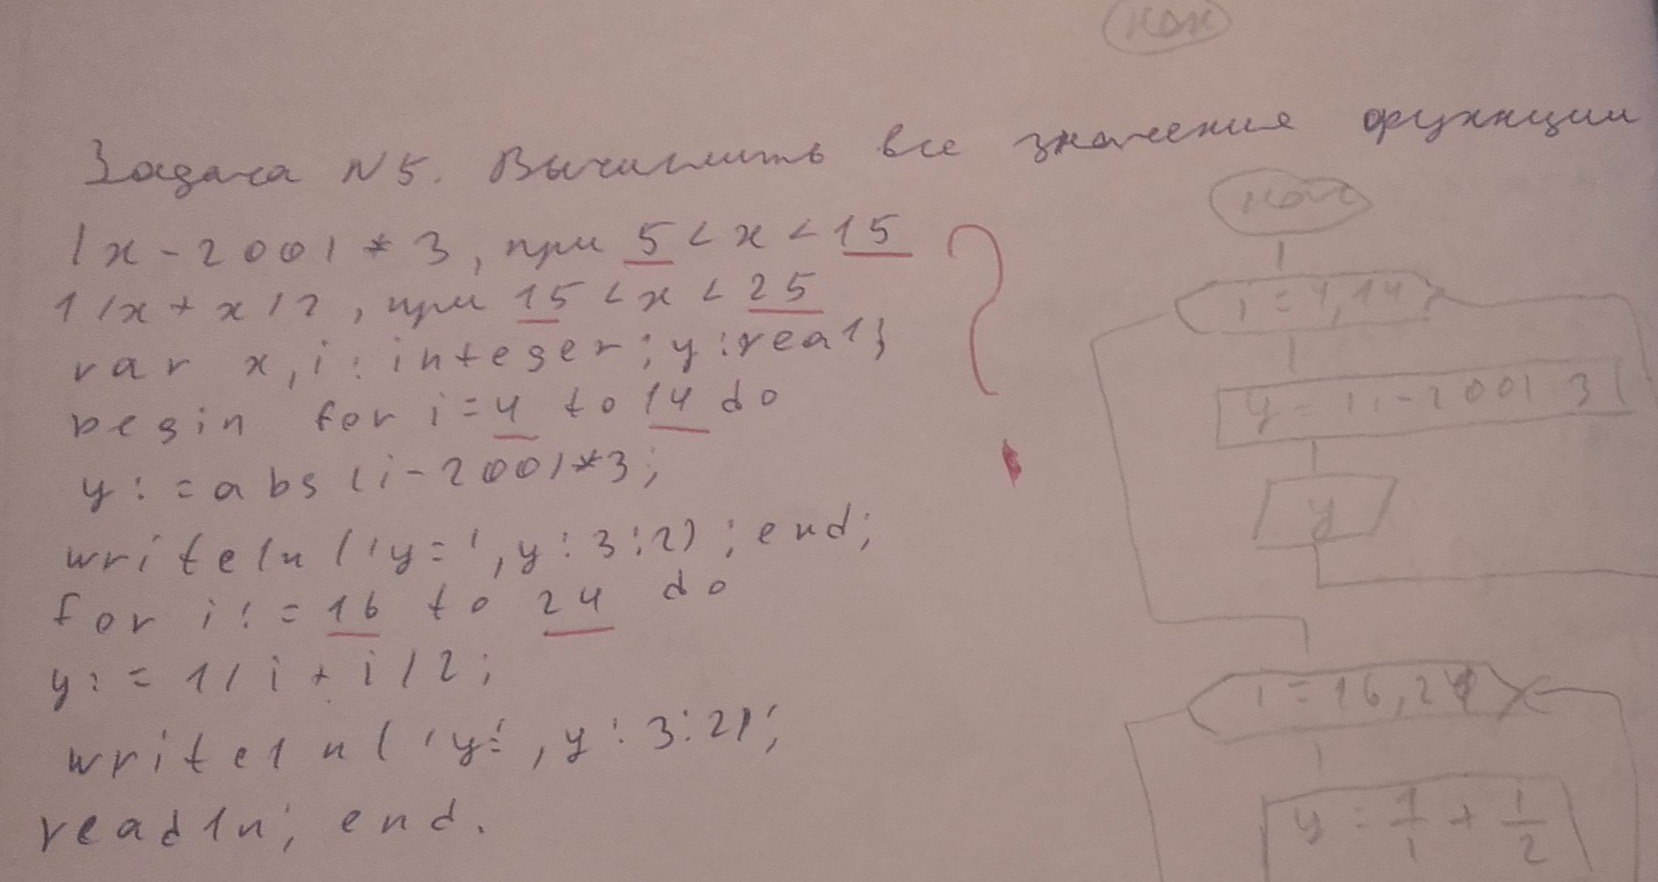 Задача N5. Вычислить все значения функции
|x-200|*3, при 5<x<15
1/x+x/2, при 15<x<25
var x,i:integer; y:real;
begin for i=4 to 14 do
y:=abs(i-200)*3;
writeln('y=',y:3:2); end;
for i:=16 to 24 do
y:=1/i+i/2;
writeln('y=',y:3:2);
readln; end.
кон
нач
i=4,14
y=|i-200|3
y
i=16,24
y=1/i+i/2